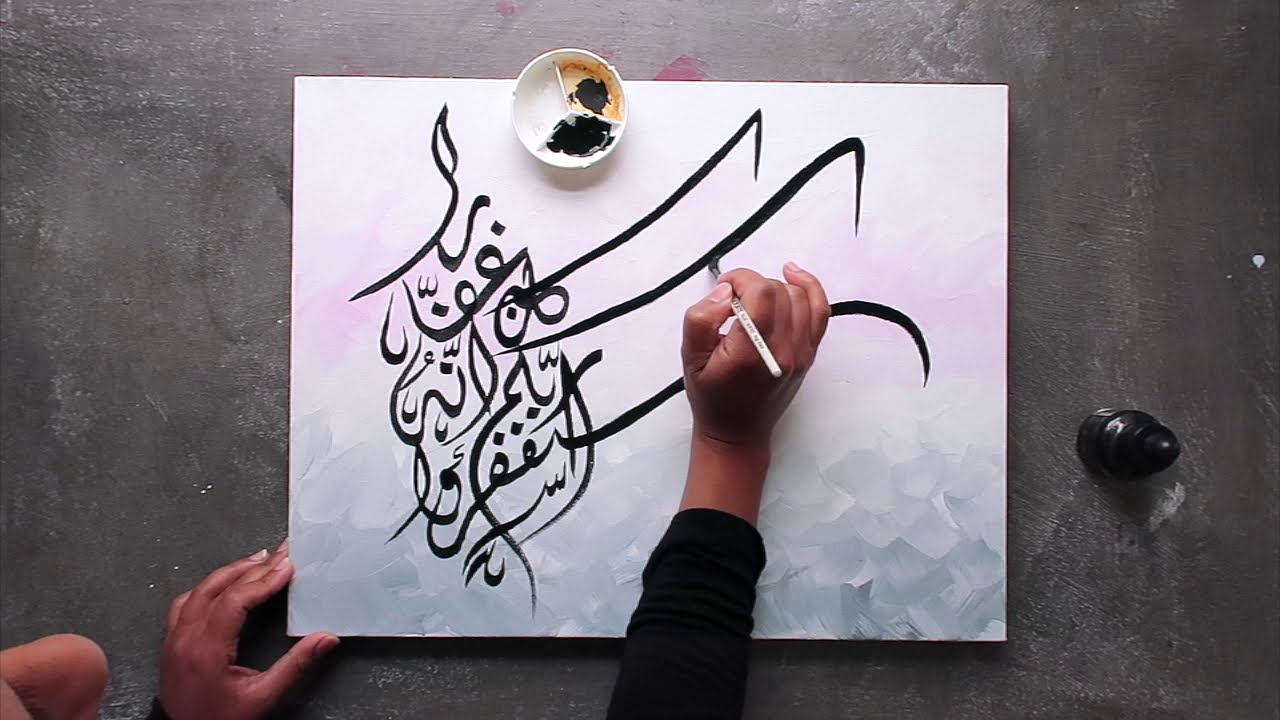 استغفروا ربّكم إنّهُ كان غفّارا